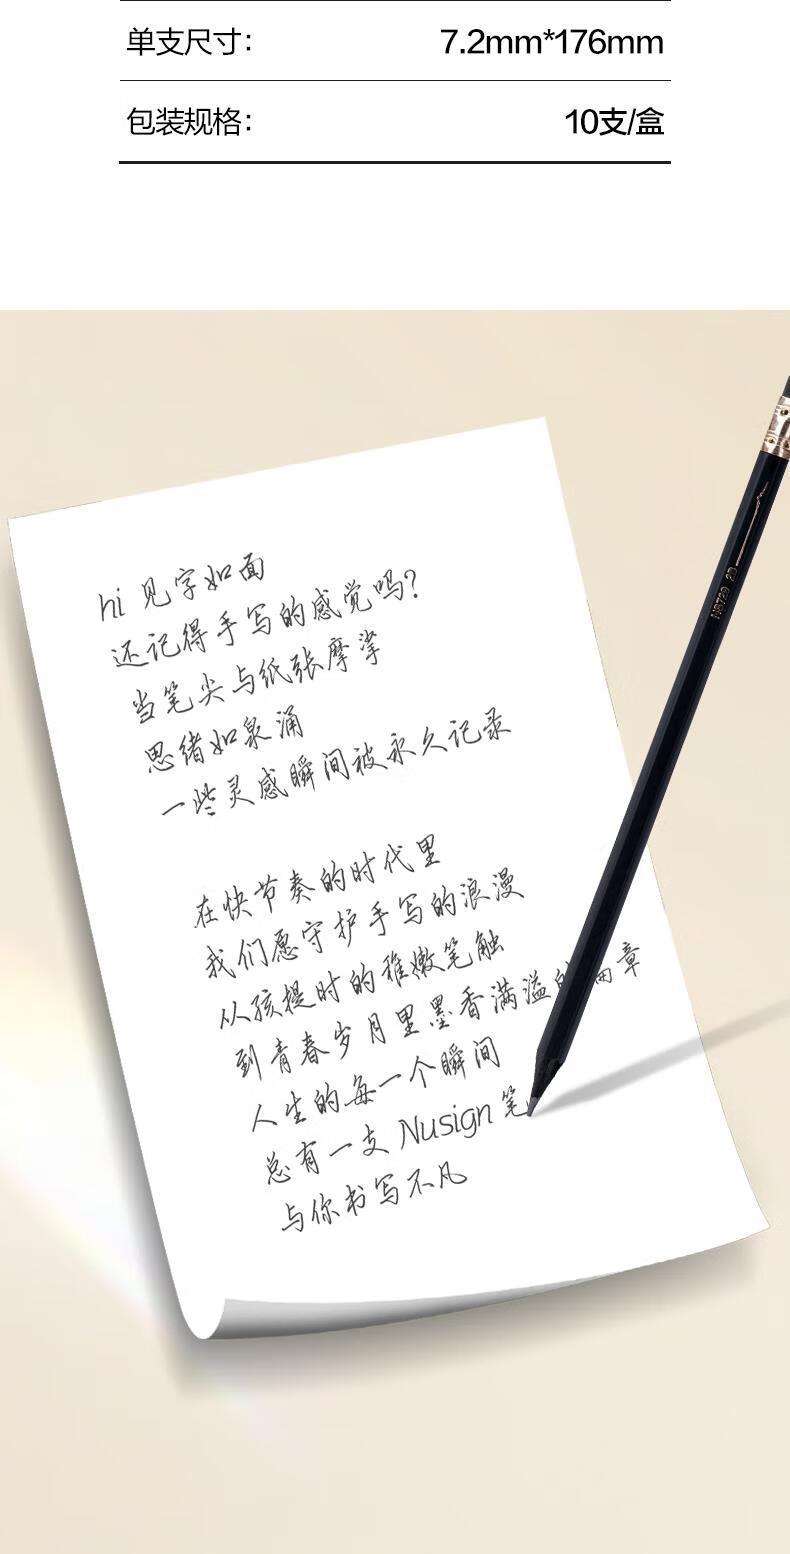 单支尺寸：
7.2mm*176mm
包装规格：
10支/盒
hi 见字如面
还记得手写的感觉吗？
当笔尖与纸张摩挲
思绪如泉涌
一些灵感瞬间被永久记录
在快节奏的时代里
我们愿守护手写的浪漫
从孩提时的稚嫩笔触
到青春岁月里墨香满溢的篇章
人生的每一个瞬间
总有一支 Nusign 笔
与你书写不凡
NS729 2B